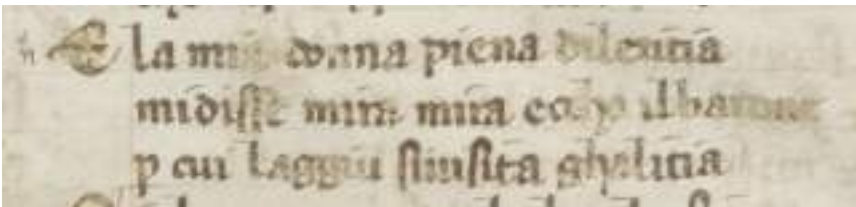 E la mia donna piena diletitia
midisse mira mira eccho ilbarone
p cui laggiu siuisita ghalitia